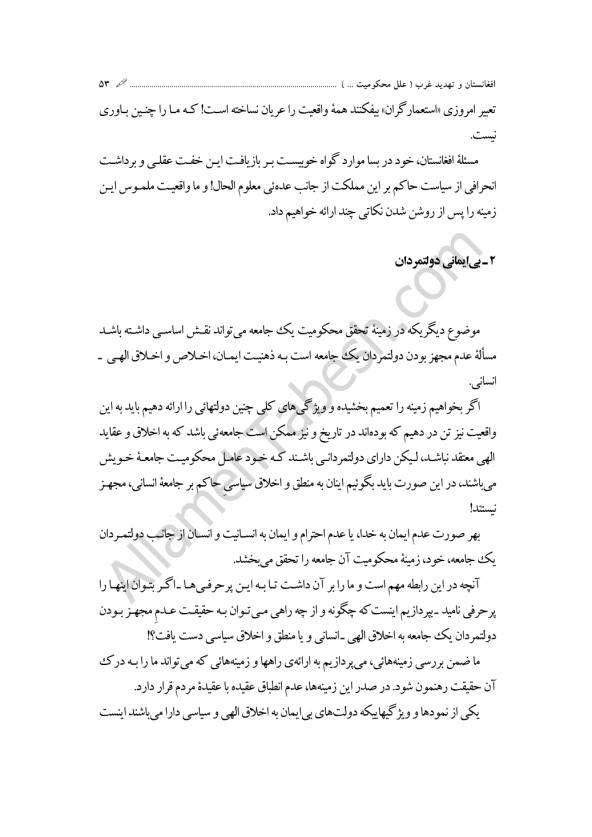 افغانستان و تهدید غرب ( علل محکومیت ... ) ................................................................ ۵۳
تعبیر امروزی «استعمارگران» بیفکنند همۀ واقعیت را عریان نساخته است! که ما را چنین باوری
نیست.
مسئلۀ افغانستان، خود در بسا موارد گواه خوبیست بر بازیافت این خفت عقلی و برداشت
انحرافی از سیاست حاکم بر این مملکت از جانب عده‌ئی معلوم الحال! و ما واقعیت ملموس این
زمینه را پس از روشن شدن نکاتی چند ارائه خواهیم داد.
۲ـ بی‌ایمانی دولتمردان
موضوع دیگریکه در زمینۀ تحقق محکومیت یک جامعه می‌تواند نقش اساسی داشته باشد
مسألۀ عدم مجهز بودن دولتمردان یک جامعه است به ذهنیت ایمان، اخلاص و اخلاق الهی ـ
انسانی.
اگر بخواهیم زمینه را تعمیم بخشیده و ویژگی‌های کلی چنین دولتهائی را ارائه دهیم باید به این
واقعیت نیز تن در دهیم که بوده‌اند در تاریخ و نیز ممکن است جامعه‌ئی باشد که به اخلاق و عقاید
الهی معتقد نباشد، لیکن دارای دولتمردانی باشند که خود عامل محکومیت جامعۀ خویش
می‌باشند، در این صورت باید بگوئیم اینان به منطق و اخلاق سیاسیِ حاکم بر جامعۀ انسانی، مجهز
نیستند!
بهر صورت عدم ایمان به خدا، یا عدم احترام و ایمان به انسانیت و انسان از جانب دولتمردان
یک جامعه، خود، زمینۀ محکومیت آن جامعه را تحقق می‌بخشد.
آنچه در این رابطه مهم است و ما را بر آن داشت تا به این پرحرفی‌ها ـ اگر بتوان اینها را
پرحرفی نامید ـ بپردازیم اینست‌که چگونه و از چه راهی می‌توان به حقیقت عدمِ مجهز بودن
دولتمردان یک جامعه به اخلاق الهی ـ انسانی و یا منطق و اخلاق سیاسی دست یافت؟!
ما ضمن بررسی زمینه‌هائی، می‌پردازیم به ارائه‌ی راهها و زمینه‌هائی که می‌تواند ما را به درک
آن حقیقت رهنمون شود. در صدر این زمینه‌ها، عدم انطباق عقیده با عقیدۀ مردم قرار دارد.
یکی از نمودها و ویژگیهاییکه دولت‌های بی‌ایمان به اخلاق الهی و سیاسی دارا می‌باشند اینست
AllamehTabesh.com